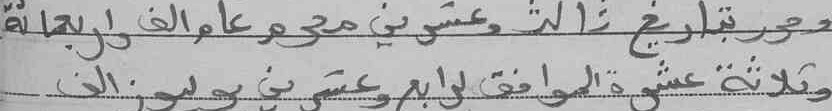 وحرر بتاريخ ثالث وعشرين محرم عام الف واربعمائة
وثلاثة عشرة الموافق لرابع وعشرين يوليوز الف